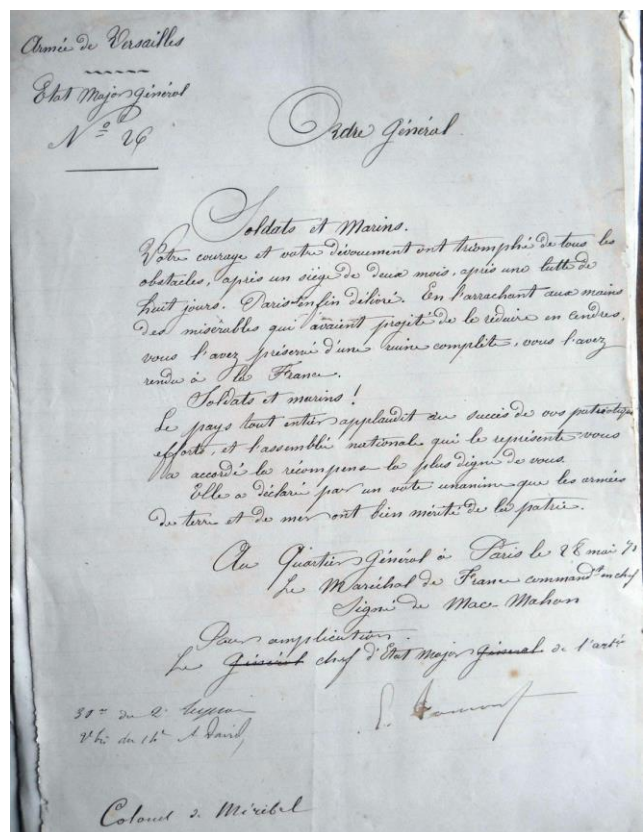 Armée de Versailles
Etat Major Général
Nº 26
Ordre Général.
Soldats et Marins.
Votre courage et votre dévouement ont triomphé de tous les
obstacles, après un siège de deux mois, après une lutte de
huit jours. Paris enfin délivré. En l'arrachant aux mains
des misérables qui avaient projeté de le réduire en cendres,
vous l'avez préservé d'une ruine complète, vous l'avez
rendu à la France.
Soldats et marins !
Le pays tout entier applaudit au succès de vos patriotiques
efforts, et l'assemblée nationale qui le représente vous
a accordé la récompense la plus digne de vous.
Elle a déclaré par un vote unanime que les armées
de terre et de mer ont bien mérité de la patrie.
Au Quartier Général à Paris le 28 mai 71
Le Maréchal de France commandt en chef
Signé de Mac-Mahon
Pour ampliation.
Le Général chef d'Etat Major Général de l'artie
Colonel de Miribel